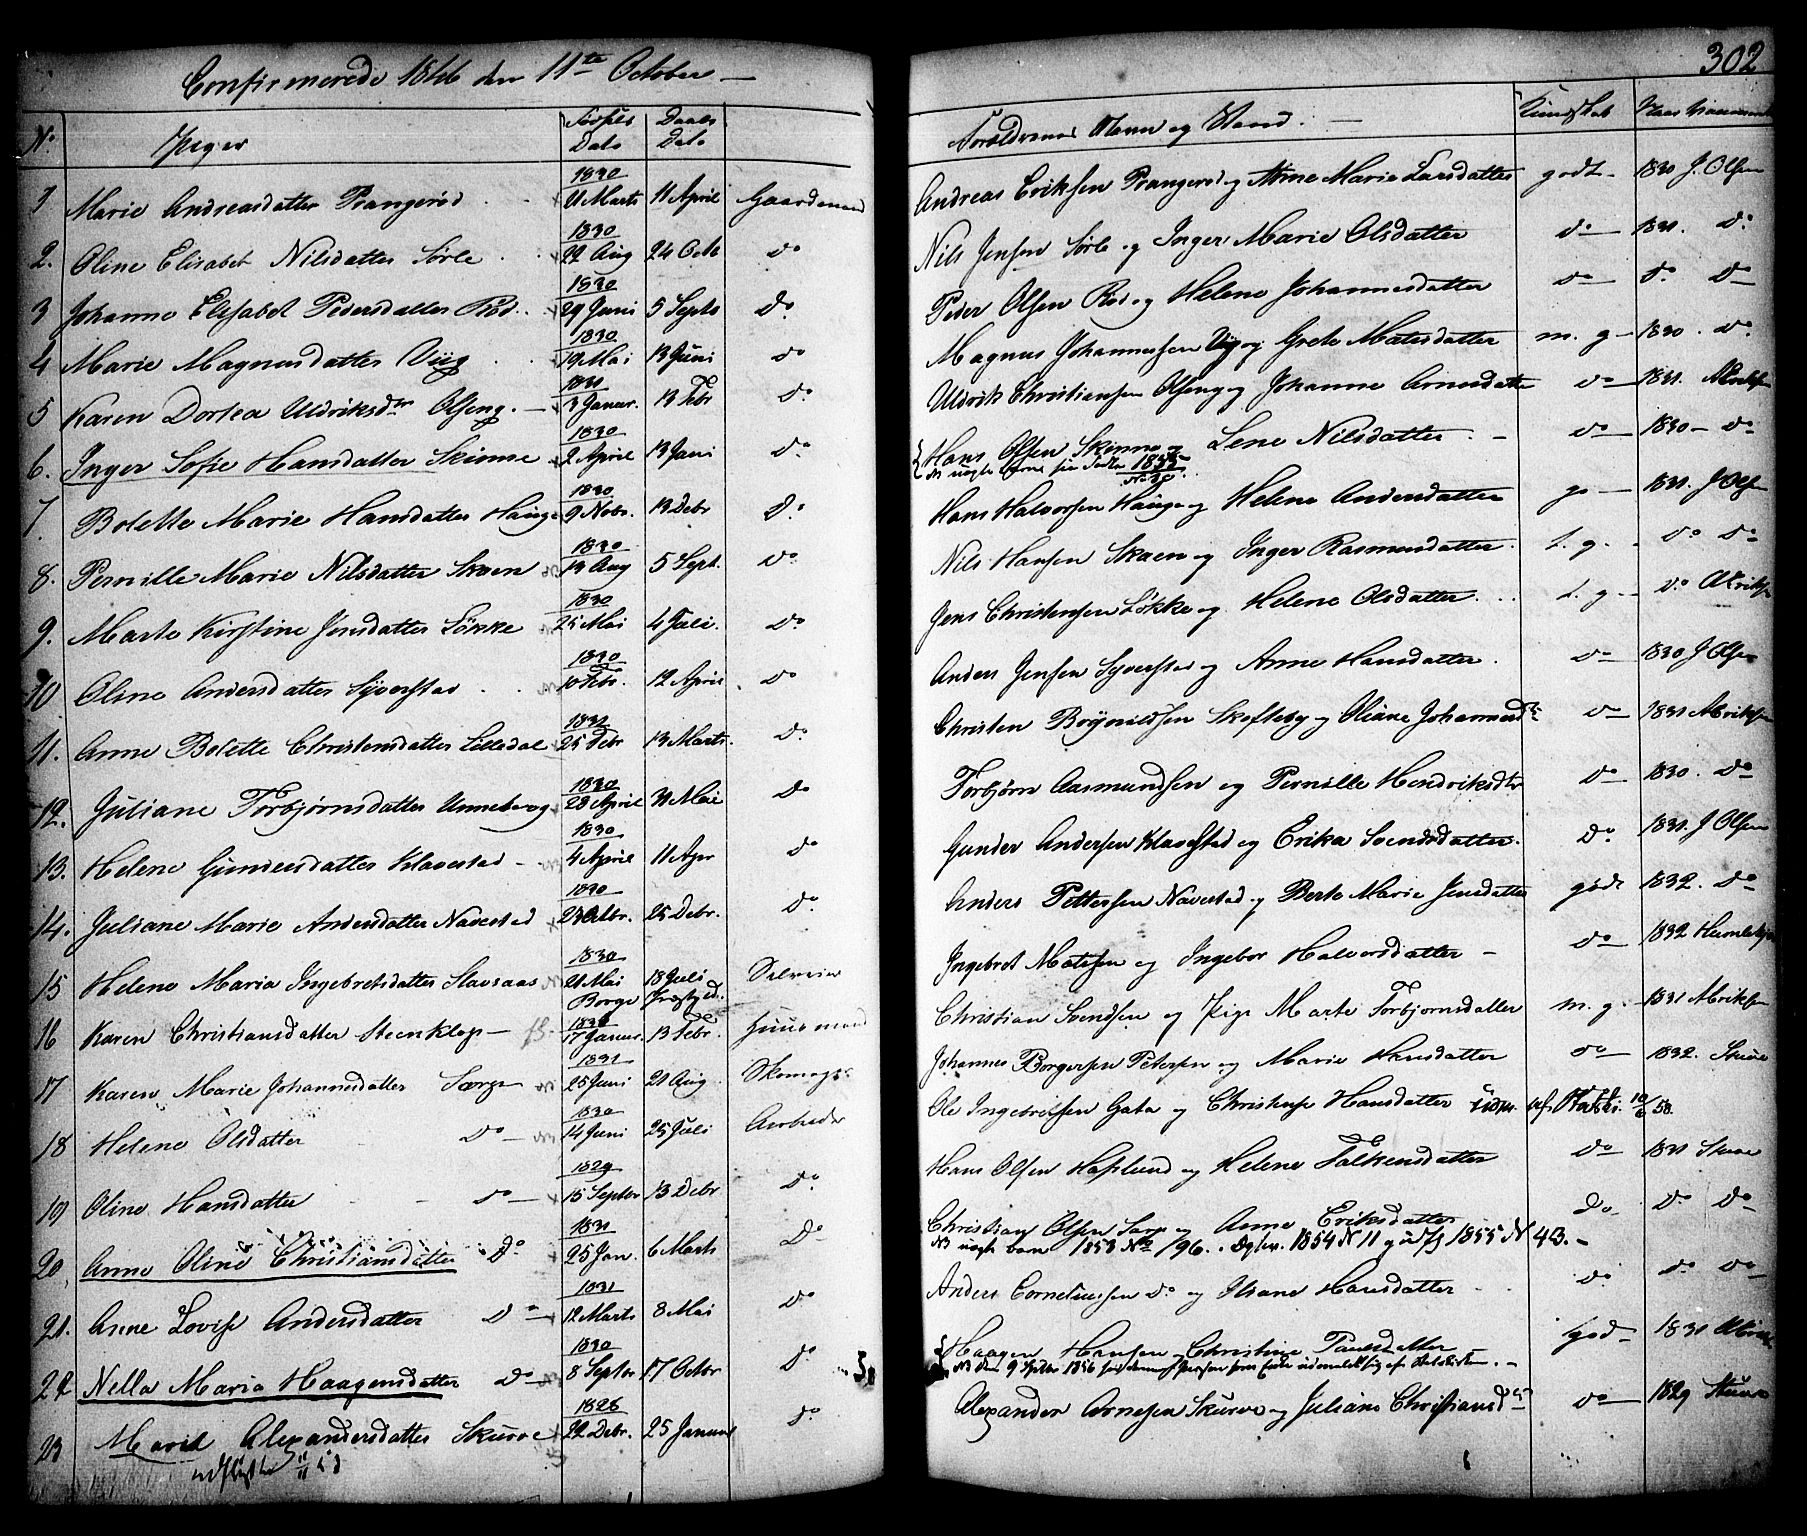 302
Confirmerede 1846 den 11te October —
No. Piger Fødsels Dato Daabs Dato
Forældrenes Navn og Stand. — Kundskab
1 Marie Andreasdatter Prangerød 1830 21 Marts 11 April Gaardmand
Andreas Eriksen Prangerød og Anne Marie Larsdatter godt - 1830 J. Olsen
2. Oline Elisabet Nilsdatter Sørle 1830 22 Aug 24 Octb do
Nils Jensen Sørle og Inger Marie Olsdatter do 1831. do
3 Johanne Elisabet Pedersdatter Röd 1830 29 Juni 5 Septb do
Peder Olsen Röd og Helene Johannesdatter do do do
4 Marie Magnusdatter Viig 1830 19 Mai 13 Juni do
Magnus Johannessen Viig og Grete Matisdatter m. g — 1830. do
5 Karen Dortea Uldriksdtr Olseng. 1831 3 Januar. 13 Febr do
Uldrik Christiansen Olseng og Johanne Arnesdatter do 1831.
6. Inger Sofie Hansdatter Skinne 1830 2 April 13 Juni do
Hans Olsen Skinne og Lene Nilsdatter. do 1830 — do
1855
7. Bolette Marie Hansdatter Hauge 1830 9 Nobr. 13 Debr do
Hans Halvorsen Hauge og Helene Andersdatter go — 1831. J Olsen
8. Pernille Marie Nilsdatter Skaen 1830 13 Aug 5 Sept. do
Nils Hansen Skaen og Inger Rasmusdatter. t. g. do do
9. Marte Kirstine Jensdatter Løkke 1830 25 Mai 4 Juli. do
Jens Christensen Løkke og Helene Olsdatter t. g — do
10 Oline Andersdatter Syverstad 1830 10 Febr. 12 April do
Anders Jensen Syverstad og Anne Hansdatter. do 1830 J Olsen
11. Anne Bolette Christensdatter Lilledal 1831 25 Febr 13 Marts. do
Christen Brynildsen Skofteby og Oliane Johannesd do 1831
12. Juliane Torbjørnsdatter Unneberg 1830 28 April 31 Mai do
Torbjørn Aasmundsen og Pernille Hendriksdtr do 1830. do
13. Helene Gundersdatter Klavestad 1830 4 April 11 Apr do
Gunder Andersen Klavestad og Erika Svendsdatter. do 1831. J Olsen
14. Juliane Marie Andersdatter Navestad 1830 25 Debr. do
Anders Pettersen Navestad og Berte Marie Jensdatter godt 1832. do
15 Helene Maria Ingebretsdatter Slavsaas 1830 21 Mai Borge 18 Juli
Ingebret Matisen og Ingebor Halvorsdatter — do 1832
16 Karen Christiansdatter Steenklep 17 Januar. 13 Febr. Huusmand
Christian Svendsen og Pige Marte Torbjornsdatter m. g. — 1831
17 Karen Marie Johannesdatter Sarp 1831 25 Juni 21 Aug
Johannes Borgersen Petersen og Marie Hansdatter do 1832.
18 Helene Olsdatter do 1830 14 Juni 25 Juli Arbeider
Ole Ingebretsen Gata og Christense Hansdatter
19) Oline Hansdatter do 1829 15 Septbr 13 Debr do
Hans Olsen Haslund og Helene Falkensdatter do 1831
20. Anne Oline Christiansdatter do 1831 25 Jan. 6 Marts do
Christian Olsen Sarp og Anne Eriksdatter do do do
1853 No 196. 1854 N 11 1855 N 43. —
21. Anne Lovise Andersdatter do 1831 12 Marts 8 Mai do
Anders Corneliussen do og Iliane Hansdatter do do do
22 Nella Maria Haagensdatter do 1830 8 Septbr 17 Octbr do
Haagen Hansen og Christine Paulsdatter god — 1831
23 Maria Alexandersdatter Skurve 1828 22 Debr. 25 Januar do
Alexander Arnesen Skurve og Juliane Christiansd do 1829